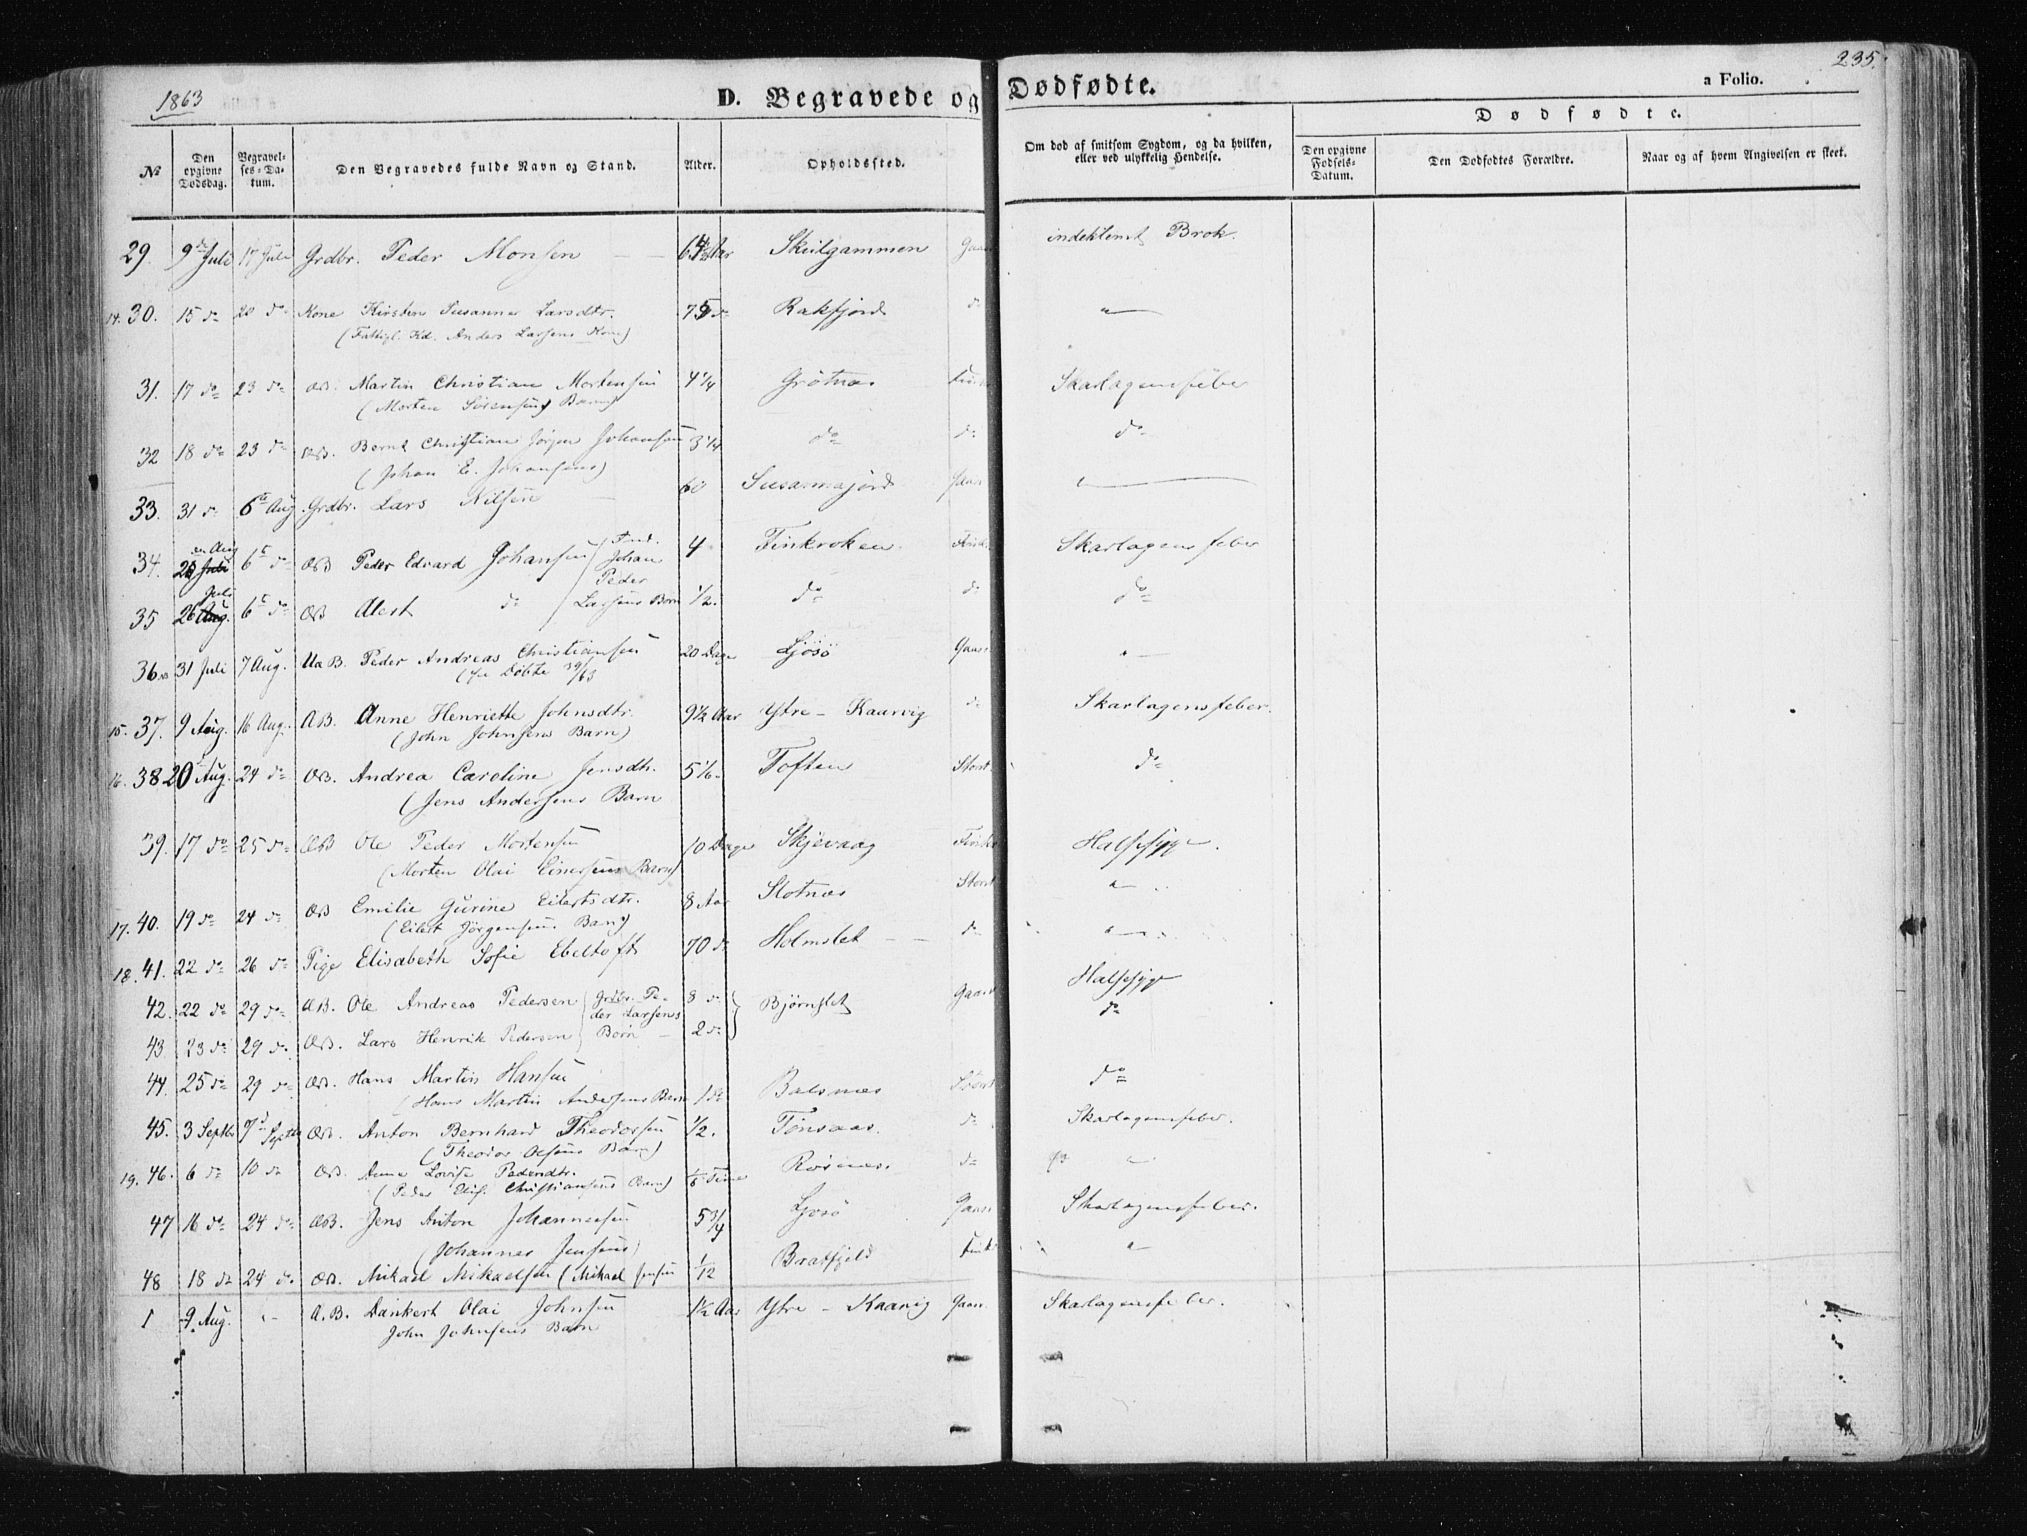 1863
D. Begravede og Dødfødte.
a Folio.
235.
№
Den opgivne Dødsdag.
Begravelses-Datum.
Den Begravedes fulde Navn og Stand.
Alder.
Opholdssted.
Om død af smitsom Sygdom, og da hvilken, eller ved ulykkelig Hendelse.
Dødfødte.
Den opgivne Fødsels-Datum.
Den Dødfødtes Forældre.
Naar og af hvem Angivelsen er skeet.
29. 9de Juli 17 Juli Grdbr. Peder Monsen Aar Skulgammen Gaas indeklemt Brok.
14. 30. 15 do 20 do Kone Kirsten Susanne Larsdtr. 75 do Rakfjord do "
(Fattigl. Kd. Anders Larsens Kone)
31. 17 do 23 do ÆB. Martin Christian Mortensen 4 1/4 Grøtnæs Skarlagensfeber
(Morten Sørensens Barn)
32 18 do 23 do ÆB. Bernt Christian Jørgen Johansen 3 1/4 do do do
(Johan E. Johansens)
33. 31 do 6te Aug. Grdbr. Lars Nilsen Gaas "
34. 6te do ÆB Peder Edvard Johansen 4 Finkroken. Skarlagensfeber
35 26 Juli 6te do ÆB Alert do 1/2. do do do
Johan Peder Larsens Børn
36. 31 Juli 7 Aug. Ua B. Peder Andreas Christiansen 20 Dage Ljøsø Gaas "
(se Døbte 39/63
15. 37. 9 Aug. 16 Aug. A B. Anne Henriette Johnsdtr. 9 1/2 Aar Ytre-Kaarvig do Skarlagensfeber.
(John Johnsens Barn)
16. 38 20 Aug. 24 do ÆB. Andrea Caroline Jensdtr. 5 1/6. Toften Stort do
(Jens Andersens Barn
39. 17 do 25 do ÆB Ole Peder Mortensen 10 Dage Skjevaag Halssyge.
(Morten Olai Einersens Barn)
17. 40. 19 do 24 do ÆB Emilie Gurine Eilertsdtr. 8 Aar Slotnæs Stort "
(Eilert Jørgensens Barn)
18. 41. 22 do 26 do Pige Elisabeth Sofie Ebeltoft 70 do Holmslet do "
42. 22 do 29 do ÆB. Ole Andreas Pedersen 8 do Bjørnslet Gaas Halssyge
43. 23 do 29 do. ÆB. Lars Henrik Pedersen 2 do do
Grdbr. Peder Larsens Børn
44. 25 do 29 do ÆB. Hans Martin Hansen 1 do Balsnæs Stort do
(Hans Martin Andersens Barn
45. 3 Septbr 7de Septbr ÆB. Anton Bernhard Theodorsen 1/2. Tønsaas. do Skarlagensfeber.
(Theodor Olsens Barn)
19. 46. 6 do 10 do ÆB. Anne Lovise Pedersdtr. Time do "
(Peder Elis. Christiansens Barn)
47 16 do 24 do ÆB. Jens Anton Johannesen 5 3/4 Ljøsø Gaas. Skarlagensfeber.
(Johannes Jensens)
48 18 do 24 do ÆB. Mikael Mikaelsen (Mikael Jensen 1/12 Bratfjeld "
1 9 Aug. " A. B. Dankert Olai Johnsen 1 1/2 Aar Ytre-Kaarvig Gaas. Skarlagensfeber.
John Johnsens Barn